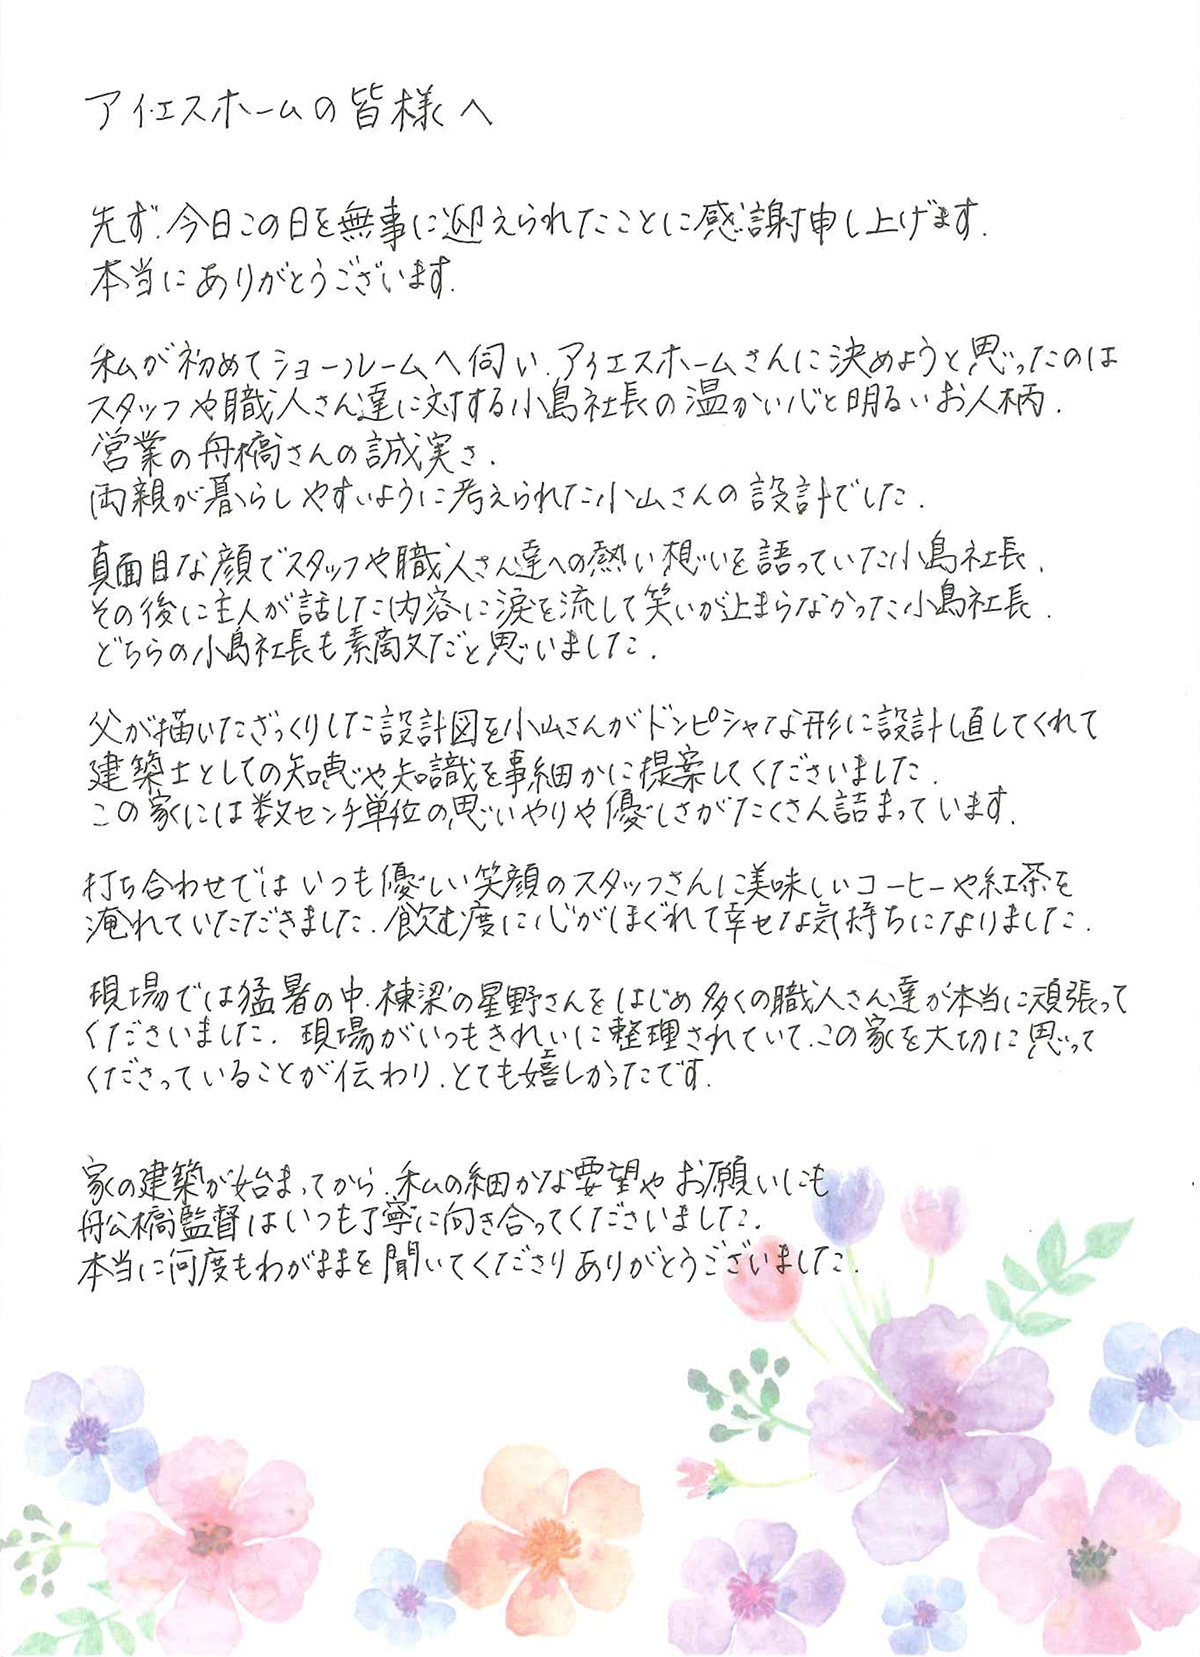 アイ・エスホームの皆様へ
先ず、今日この日を無事に迎えられたことに感謝申し上げます.
本当にありがとうございます.
私が初めてショールームへ伺い、アイ・エスホームさんに決めようと思ったのは
スタッフや職人さん達に対する小島社長の温かい心と明るいお人柄.
営業の舟橋さんの誠実さ.
両親が暮らしやすいように考えられた小山さんの設計でした.
真面目な顔でスタッフや職人さん達への熱い想いを語っていた小島社長.
その後に主人が話した内容に涙を流して笑いが止まらなかった小島社長.
どちらの小島社長も素敵だと思いました.
父が描いたざっくりした設計図を小山さんがドンピシャな形に設計し直してくれて
建築士としての知恵や知識を事細かに提案してくださいました.
この家には数センチ単位の思いやりや優しさがたくさん詰まっています.
打ち合わせではいつも優しい笑顔のスタッフさんに美味しいコーヒーや紅茶を
淹れていただきました、飲む度に心がほぐれて幸せな気持ちになりました.
現場では猛暑の中、棟梁の星野さんをはじめ多くの職人さん達が本当に頑張って
くださいました. 現場がいつもきれいに整理されていて、この家を大切に思って
くださっていることが伝わり、とても嬉しかったです.
家の建築が始まってから、私の細かな要望やお願いにも
舟橋監督はいつも丁寧に向き合ってくださいました.
本当に何度もわがままを聞いてくださりありがとうございました.